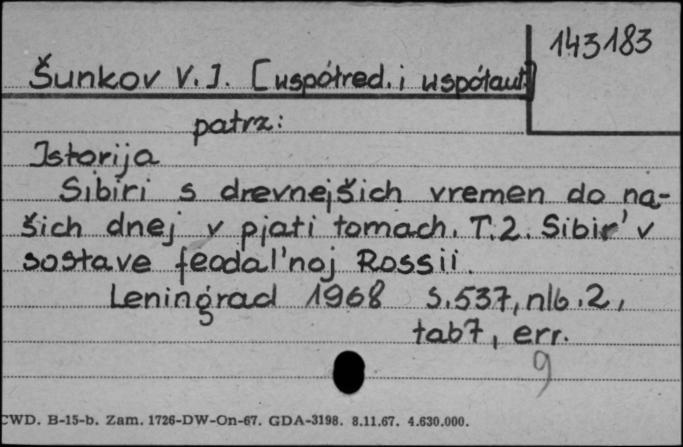 143183
Šunkov V.J. [uspółred. i uspółaut.]
patrz:
Istorija
Sibiri s drevnejšich vremen do na-
šich dnej v pjati tomach. T.2. Sibir' v
sostave feodal'noj Rossii.
Leningrad 1968 S.537, nlb.2,
tab7, err.
9
CWD. B-15-b. Zam. 1726-DW-On-67. GDA-3198. 8.11.67. 4.630.000.